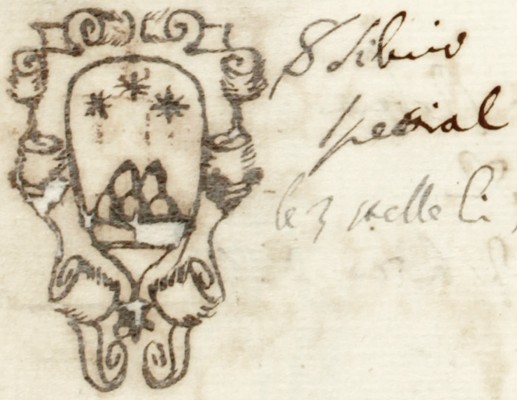 Silvio
spesial
le 3 stelle li